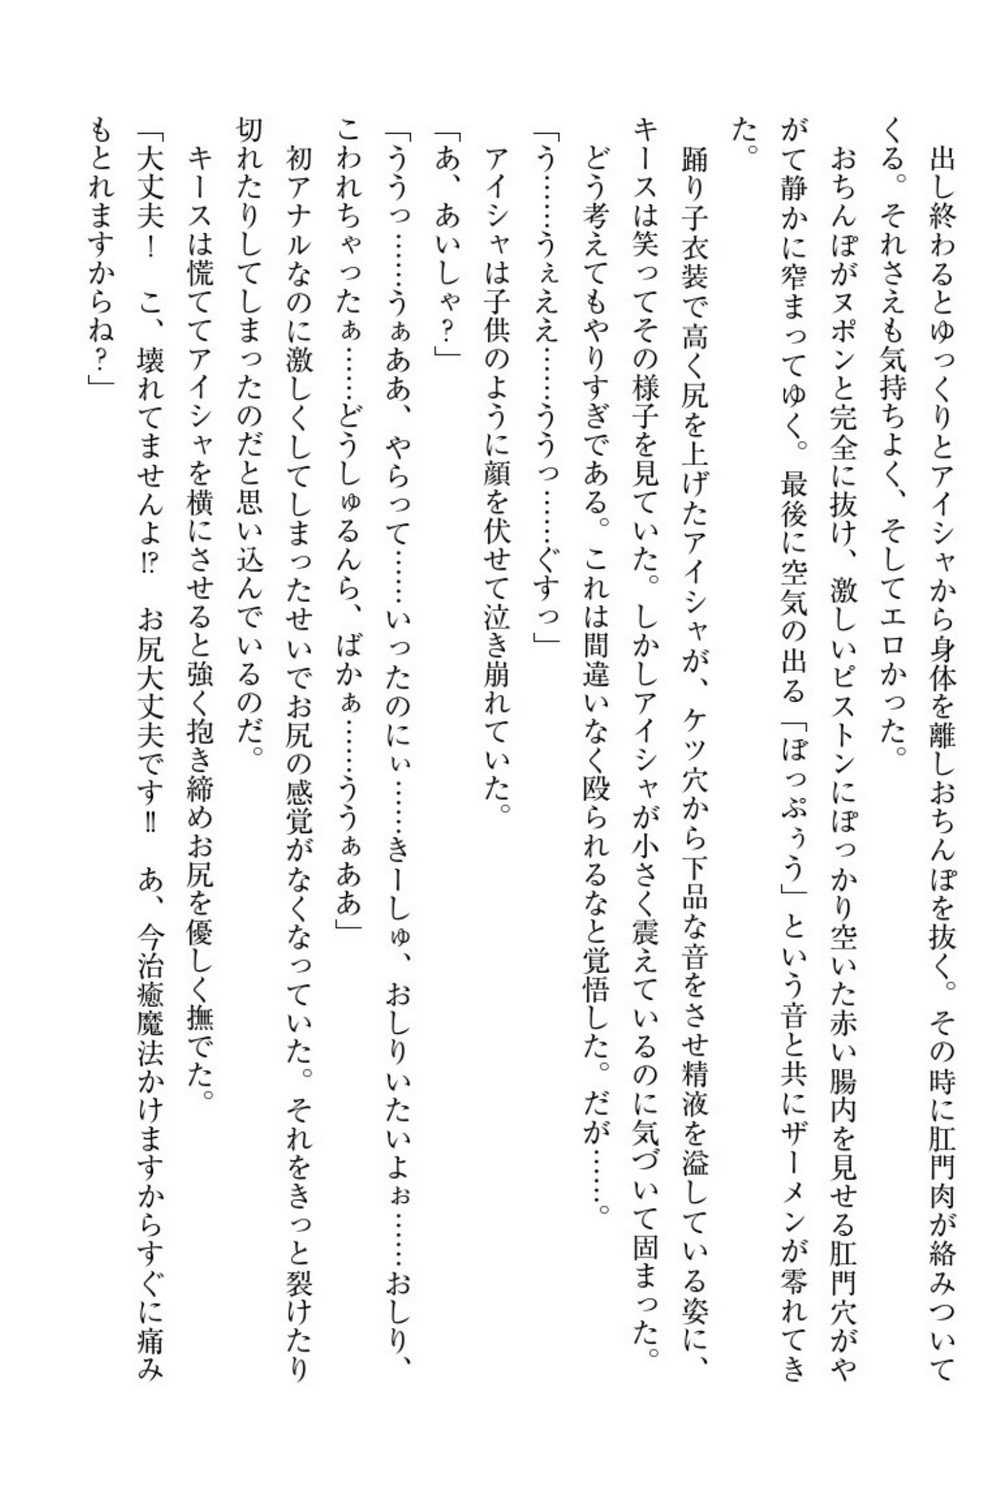 出し終わるとゆっくりとアイシャから身体を離しおちんぽを抜く。その時に肛門肉が絡みついて
くる。それさえも気持ちよく、そしてエロかった。
おちんぽがヌポンと完全に抜け、激しいピストンにぽっかり空いた赤い腸内を見せる肛門穴がや
がて静かに窄まってゆく。最後に空気の出る「ぼっぷぅう」という音と共にザーメンが零れてき
た。
踊り子衣装で高く尻を上げたアイシャが、ケツ穴から下品な音をさせ精液を溢している姿に、
キースは笑ってその様子を見ていた。しかしアイシャが小さく震えているのに気づいて固まった。
どう考えてもやりすぎである。これは間違いなく殴られるなと覚悟した。だが……。
「う……うぇええ……ううっ……ぐすっ」
アイシャは子供のように顔を伏せて泣き崩れていた。
「あ、あいしゃ？」
「ううっ……うぁああ、やらって……いったのにぃ……きーしゅ、おしりいたいよぉ……おしり、
こわれちゃったぁ……どうしゅるんら、ばかぁ……ううぁああ」
初アナルなのに激しくしてしまったせいでお尻の感覚がなくなっていた。それをきっと裂けたり
切れたりしてしまったのだと思い込んでいるのだ。
キースは慌ててアイシャを横にさせると強く抱き締めお尻を優しく撫でた。
「大丈夫！　こ、壊れてませんよ⁉　お尻大丈夫です‼　あ、今治癒魔法かけますからすぐに痛み
もとれますからね？」